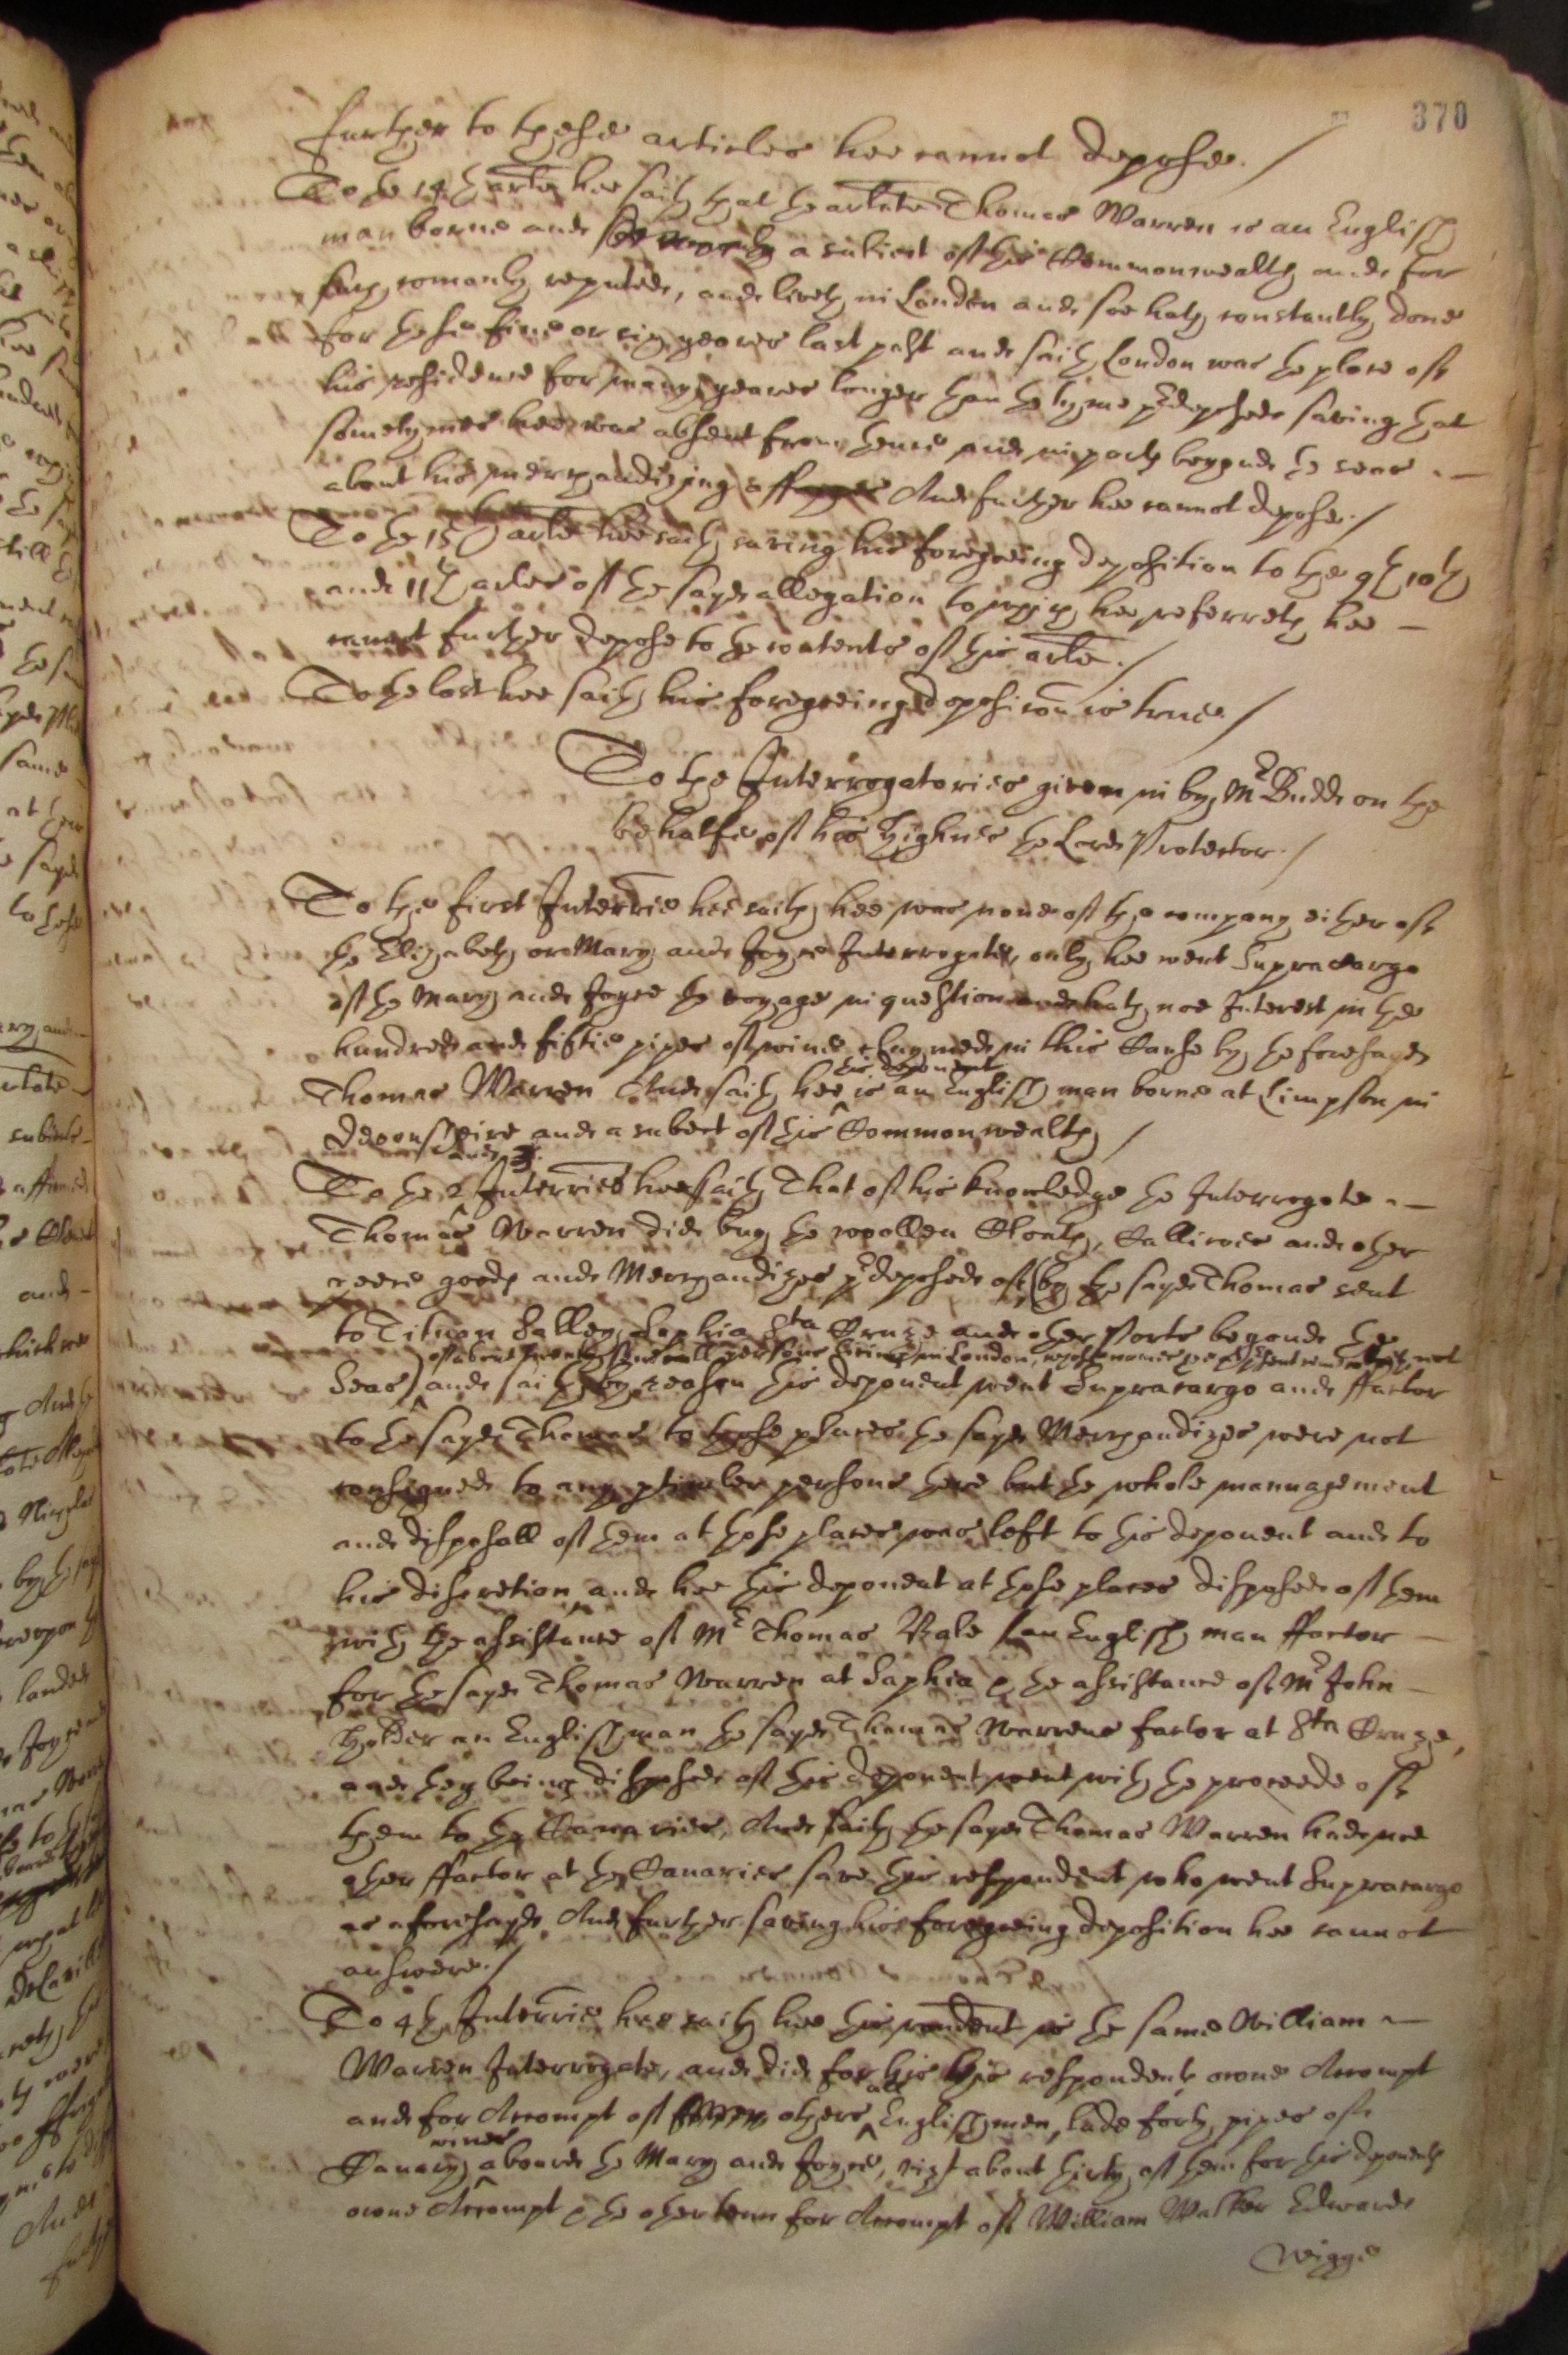 370
further to these articles hee cannot depose./
To the 14th arle hee saith that the arlate Thomas Warren is an English
man borne and a subiect of this Commonwealth and for
such comonly reputed, and liveth in London and soe hath constantly done
for these five or six yeares last past and saith London was the place of
his residence for many yeares longer than the tyme predeposed saving that
sometymes hee was absent from thence and in parts beyond the seas
about his merchandizing affayres And further hee cannot depose./
To the 15th arle hee saith saving his foregoeing deposition to the 9th 10th
and 11th arles of the sayd allegation to which hee referreth hee
cannot further depose to the contents of this arle./
To the last hee saith his foregoeing deposicon is true./
To the Interrogatories given in by Mr Budd on the
behalfe of his Highnes the Lord Protector./
To the first Interrie hee saith hee was none of the company either of
the Elizabeth or Mary and Joyce Interrogate, only hee went Supracargo
of the Mary and Joyce the voyage in question and hath noe Interest in the
hundred and fiftie pipes of wine claymed in this Cause by the foresayd
Thomas Warren And saith hee this deponent is an English man borne at Limpson in
Devonshire and a subect of this Commonwealth /
To the 2 and 3. Interries hee saith That of his knowledge the Interrogate
Thomas Warren did buy the woollen Cloath, Callicoes and other
goods and Merchandizes predeposed of (by the sayd Thomas sent
to Tituan Salley Saphia Sta Cruze and other Ports beyond the
of about twenty severall persons living in London, whose names hee at present remembreth not
Seas) and saith by reason this deponent went Supracargo and ffactor
to the sayd Thomas to those places the sayd Merchandizes were not
consigned to any pticuler persons there but the whole mannagement
and disposall of them at those places was left to this deponent and to
his discretion, and hee this deponent at those places disposed of them
with the assistance of Mr Thomas Bale (an English man ffactor
for the sayd Thomas Warren at Saphia & the assistance of Mr John
Holder an English man the sayd Thomas Warrens factor at Sta Cruze,
and they being disposed of this deponent went with the proceede of
them to the Canaries, And saith the sayd Thomas Warren had noe
other ffactor at the Canaries save this respondent who went Supracargo
as aforesayd And further saving his foregoeing deposition hee cannot
answere./
To 4th Interrie hee saith hee this rendent is the same William
Warren Interrogate, and did for his this respondents owne Accompt
and for Accompt of others all English men, lade forty pipes of
Canary wines aboard the Mary and Joyce, vizt about thirty of them for this deponents
owne Accompt & the other tenn for Accompt of William Walker Edward
Wigge